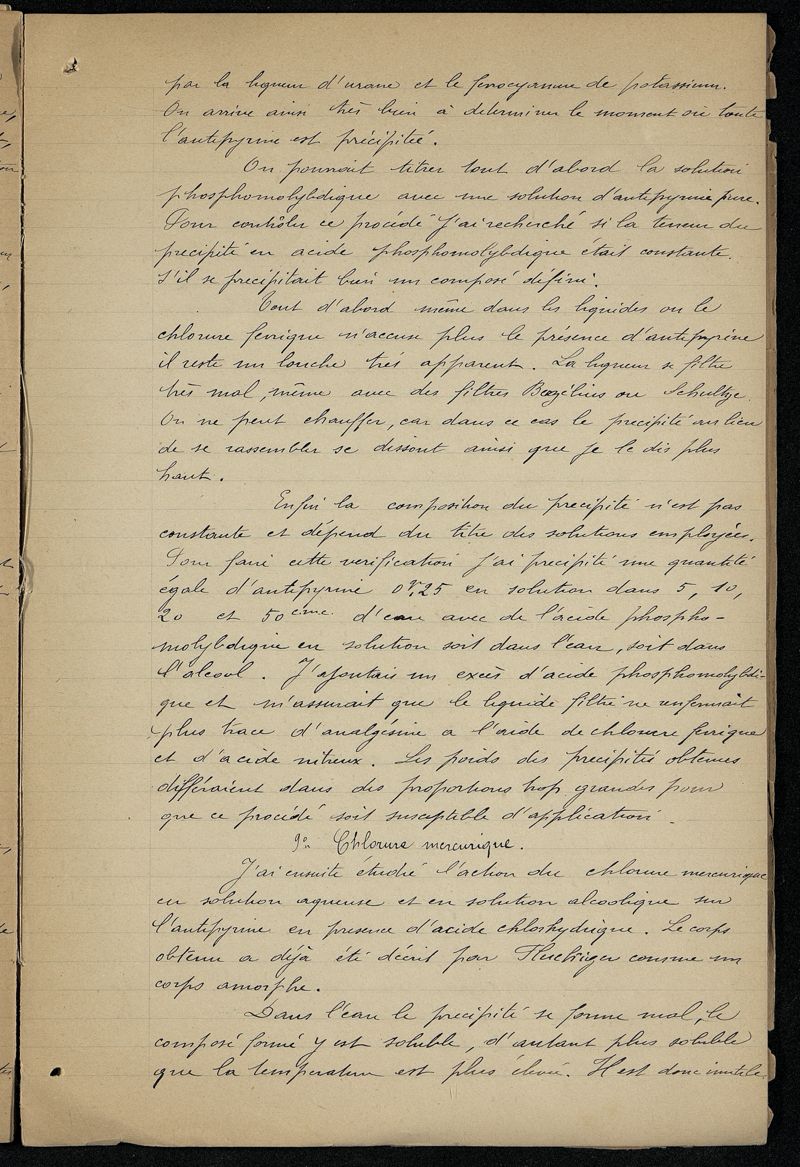 par la liqueur d'urane et le ferrocyanure de potassium.
On arrive ainsi très bien à determiner le moment où toute
l'antipyrine est précipitée.
On pourrait titrer tout d'abord la solution
phosphomolybdique avec une solution d'antipyrine pure.
Pour contrôler ce procédé j'ai recherché si la teneur du
precipité en acide phosphomolybdique était constante.
S'il se precipitait bien un composé défini.
Tout d'abord même dans les liquides ou le
chlorure ferrique n'accuse plus la présence d'antipyrine
il reste un louche très apparent. La liqueur se filtre
très mal, même avec des filtres Berzélius ou Schultze.
On ne peut chauffer, car dans ce cas le precipité au lieu
de se rassembler se dissout ainsi que je le dis plus
haut.
Enfin la composition du precipité n'est pas
constante et dépend du titre des solutions employées.
Pour faire cette verification j'ai precipité une quantité
égale d'antipyrine 0gr,25 en solution dans 5, 10,
20 et 50 cmc. d'eau avec de l'acide phospho-
molybdique en solution soit dans l'eau, soit dans
l'alcool. J'ajoutais un excès d'acide phosphomolybdi-
que et m'assurait que le liquide filtré ne renfermait
plus trace d'analgésine a l'aide de chlorure ferrique
et d'acide nitreux. Les poids des precipités obtenus
différaient dans des proportions trop grandes pour
que ce procédé soit susceptible d'application.
9o Chlorure mercurique.
J'ai ensuite étudié l'action du chlorure mercurique
en solution aqueuse et en solution alcoolique sur
l'antipyrine en presence d'acide chlorhydrique. Le corps
obtenu a déjà été décrit par Fluckiger comme un
corps amorphe.
Dans l'eau le precipité se forme mal, le
composé formé y est soluble, d'autant plus soluble
que la temperature est plus élevée. Il est donc inutile